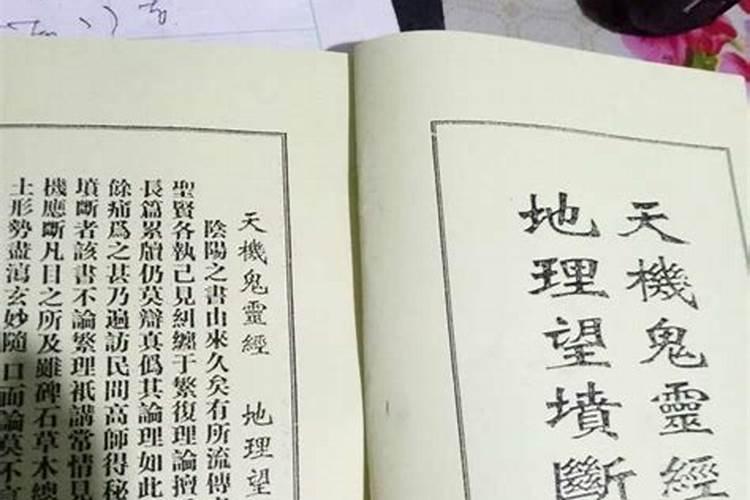 天機鬼靈經
地理望墳斷
天機鬼靈經 地理望
陰陽之書由來久矣有所流傳
聖賢各執己見糾纏于繁復理論擅
長篇累牘仍莫辯真僞其論理如此
餘痛爲之甚乃遍訪民間高師得秘
墳斷者該書不論繁理祇講常情見
機應斷凡目之所及雖碑石草木總
土形勢盡瀉玄妙隨口面論莫不言